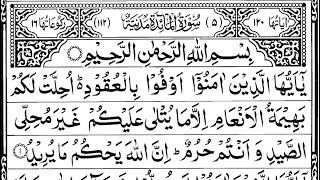 اٰيَاتُهَا ١٢٠ (٥) سُوْرَةُ الْمَآئِدَةِ مَدَنِيَّةٌ (١١٢) رُكُوْعَاتُهَا ١٦
بِسْمِ اللّٰهِ الرَّحْمٰنِ الرَّحِيْمِ
يٰۤاَيُّهَا الَّذِيْنَ اٰمَنُوْۤا اَوْفُوْا بِالْعُقُوْدِ ؕ اُحِلَّتْ لَكُمْ
بَهِيْمَةُ الْاَنْعَامِ اِلَّا مَا يُتْلٰى عَلَيْكُمْ غَيْرَ مُحِلِّى
الصَّيْدِ وَاَنْتُمْ حُرُمٌ ؕ اِنَّ اللّٰهَ يَحْكُمُ مَا يُرِيْدُ ۝١